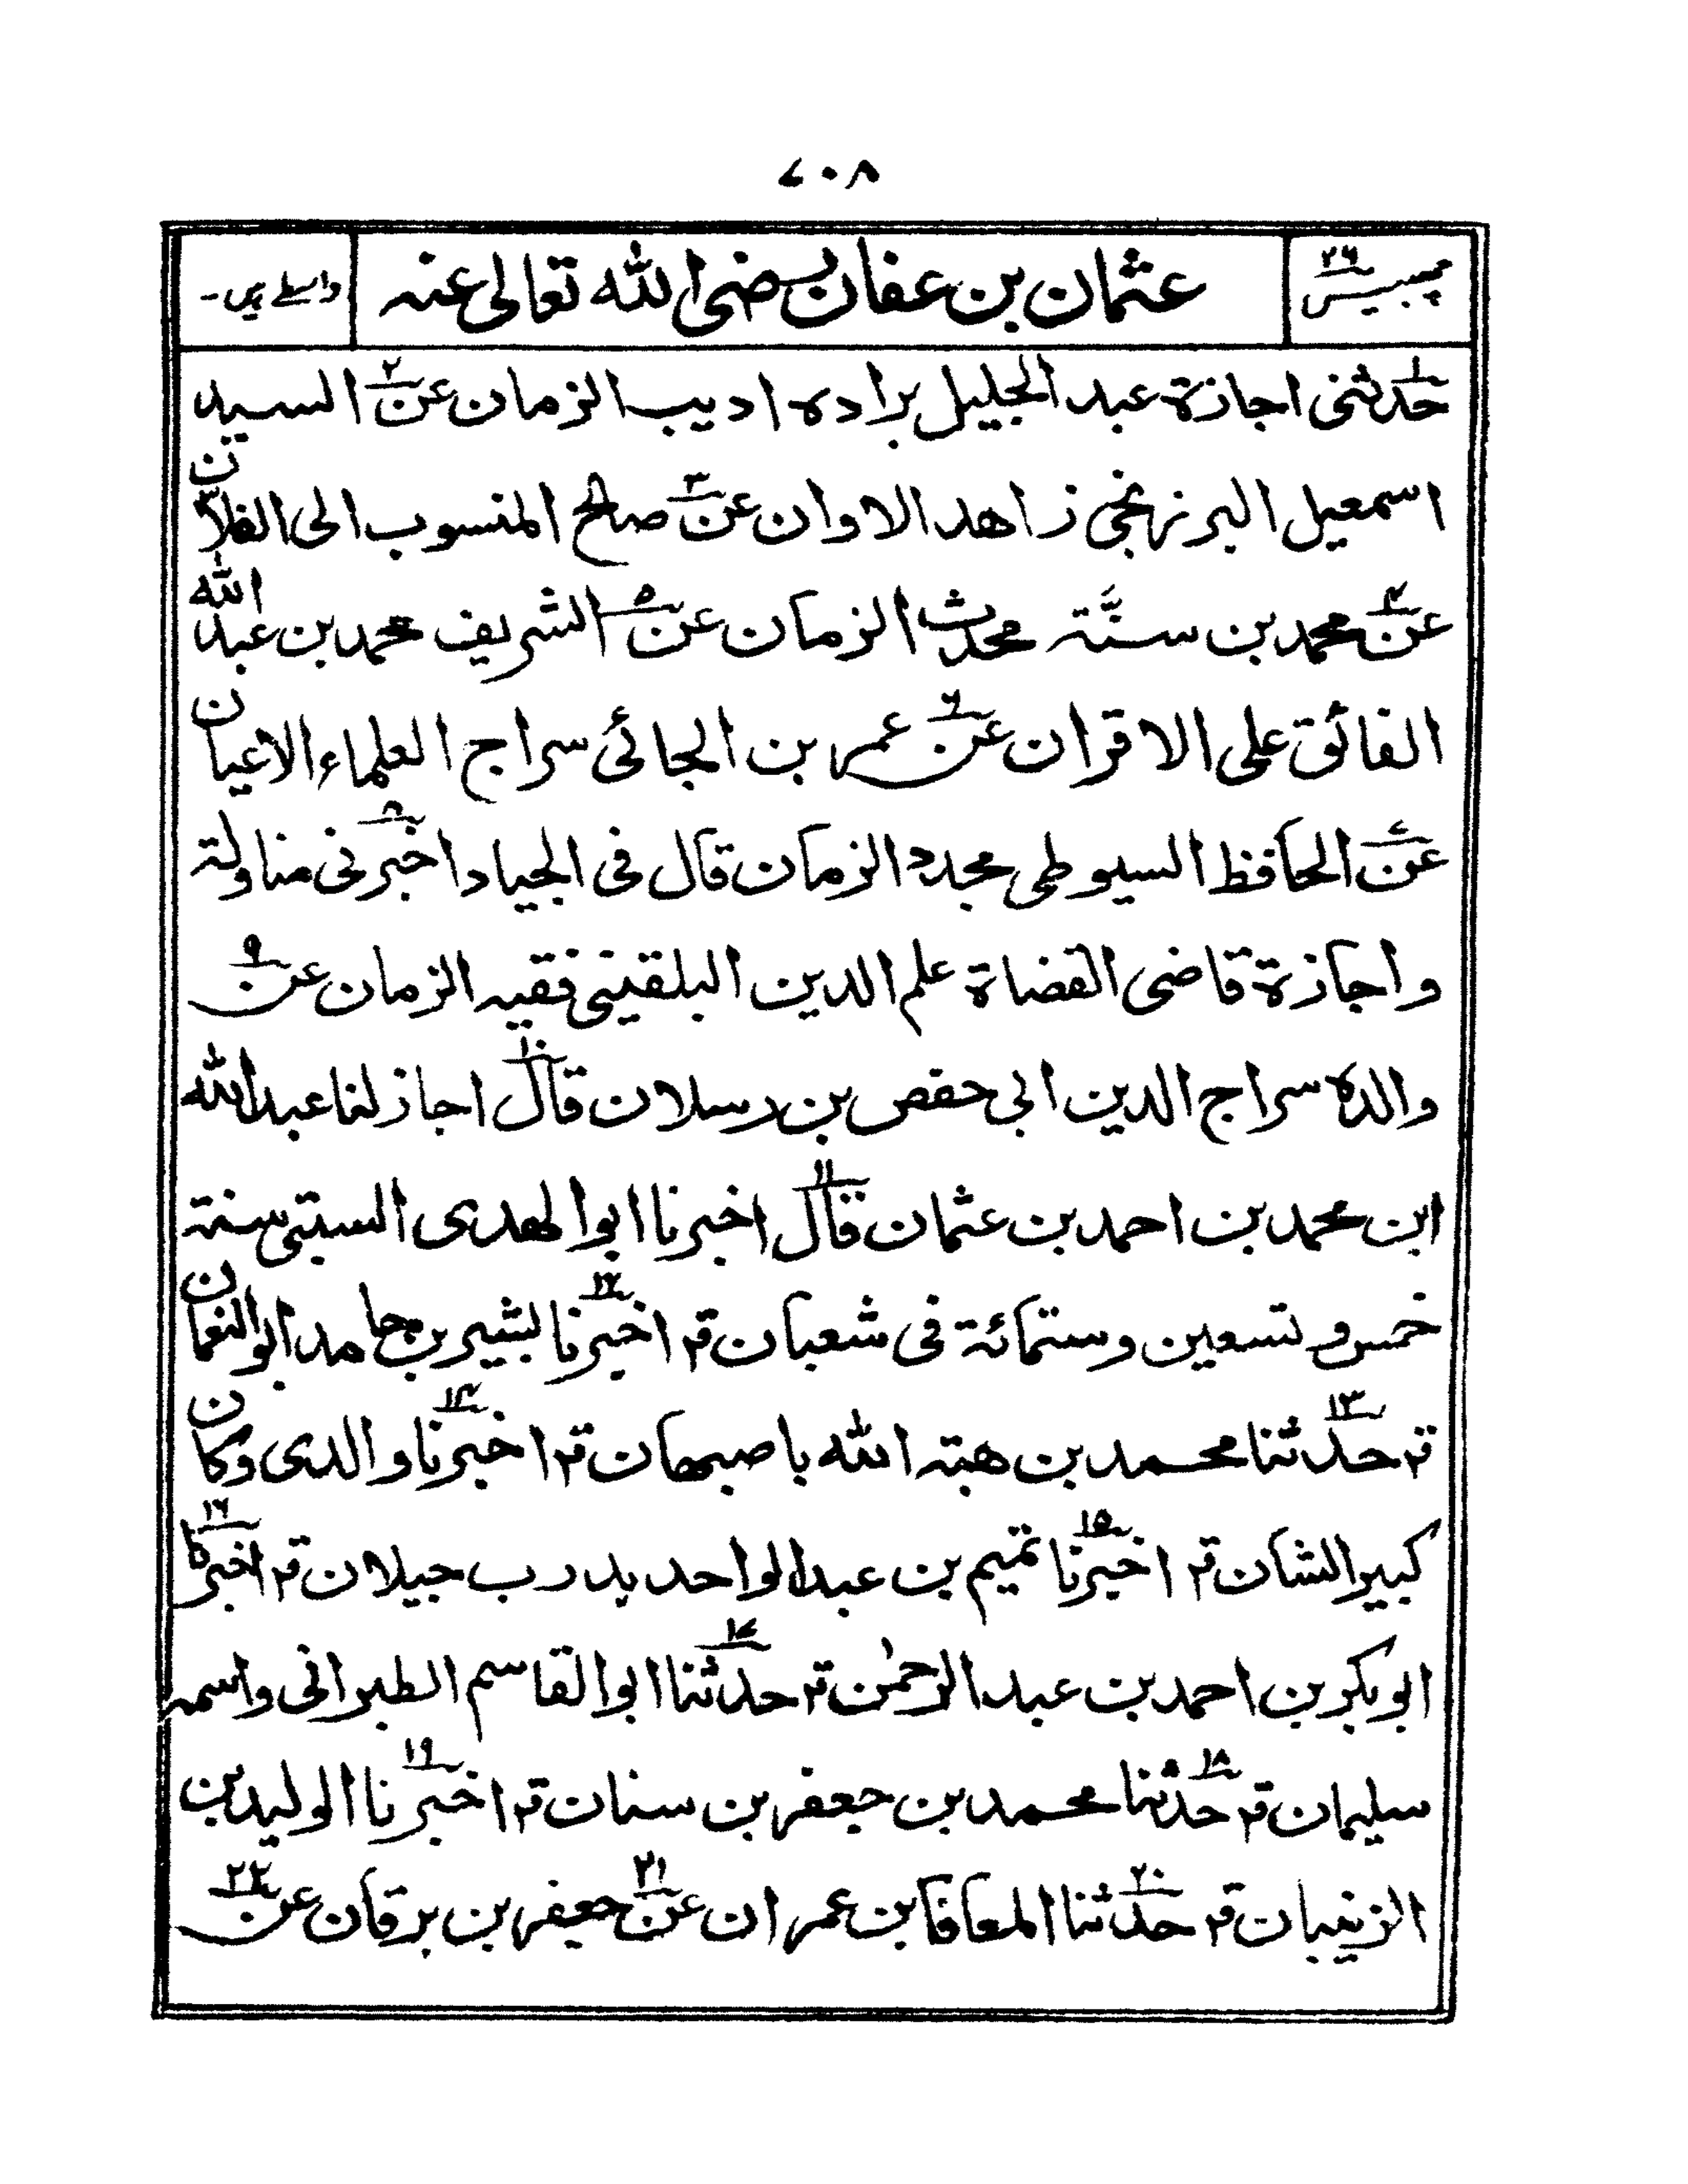 ۷۰۸
۲۶ چھبیس
عثمان بن عفان رضی اللہ تعالی عنہ
واسطے ہیں۔
۱ حدثنی اجازۃ عبد الجلیل برادہ ادیب الزمان ۲ عن السید
اسمعیل البرزنجی زاھد الاوان ۳ عن صالح المنسوب الی الفلان
۴ عن محمد بن سنَّۃ محدث الزمان ۵ عن الشریف محمد بن عبد اللہ
الفائق علی الاقران ۶ عن عمر بن الجائی سراج العلماء الاعیان
۷ عن الحافظ السیوطی مجدد الزمان قال فی الجیاد ۸ اخبرنی مناولۃ
واجازۃ قاضی القضاۃ علم الدین البلقینی فقیہ الزمان ۹ عن
والدہ سراج الدین ابی حفص بن رسلان ۱۰ قال اجاز لنا عبد اللہ
ابن محمد بن احمد بن عثمان ۱۱ قال اخبرنا ابوالھدی السبتی سنۃ
خمس و تسعین وستمائۃ فی شعبان قہ ۱۲ اخبرنا بشیر بن حامد ابو النعمان
قہ ۱۳ حدثنا محمد بن ھبۃ اللہ باصبھان قہ ۱۴ اخبرنا والدی وکان
کبیر الشان قہ ۱۵ اخبرنا تمیم بن عبد الواحد بدرب جیلان قہ ۱۶ اخبرنا
ابو بکر بن احمد بن عبد الرحمٰن قہ ۱۷ حدثنا ابو القاسم الطبرانی واسمہ
سلیمان قہ ۱۸ حدثنا محمد بن جعفر بن سنان قہ ۱۹ اخبرنا الولید بن
الزینبان قہ ۲۰ حدثنا المعافا بن عمران ۲۱ عن جعفر بن برقان ۲۲ عن